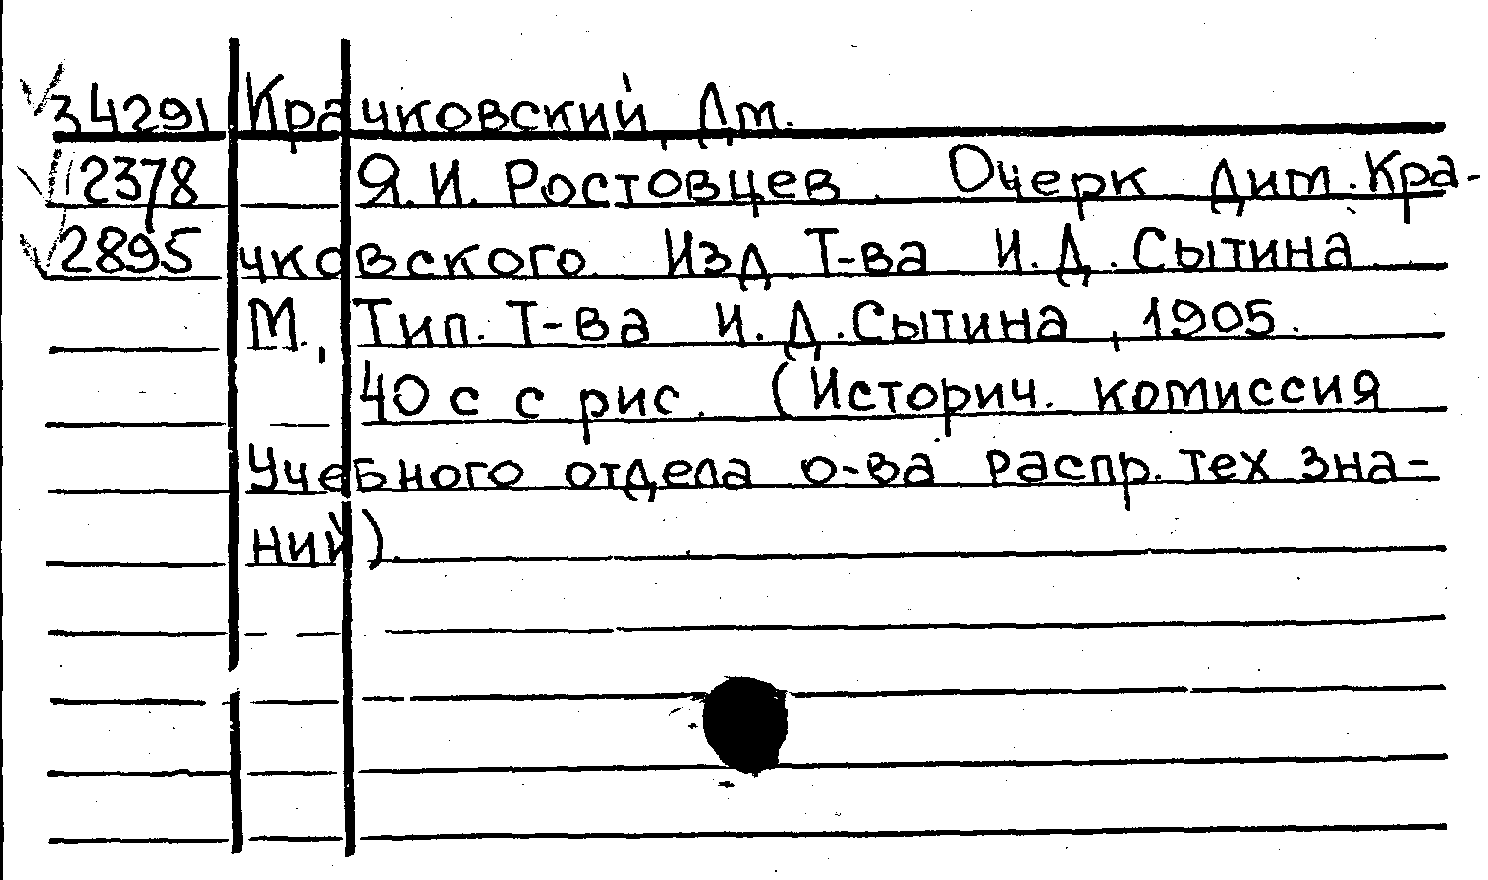 34291 Крачковский Дм.
12378 Я.И. Ростовцев. Очерк Дит. Кра-
12895 чковского Изд Т-ва И.Д. Сытина
М., Тип. Т-ва И.Д. Сытина, 1905.
40 с с рис. (Историч. комиссия
Учебного отдела о-ва распр. тех зна-
ний).